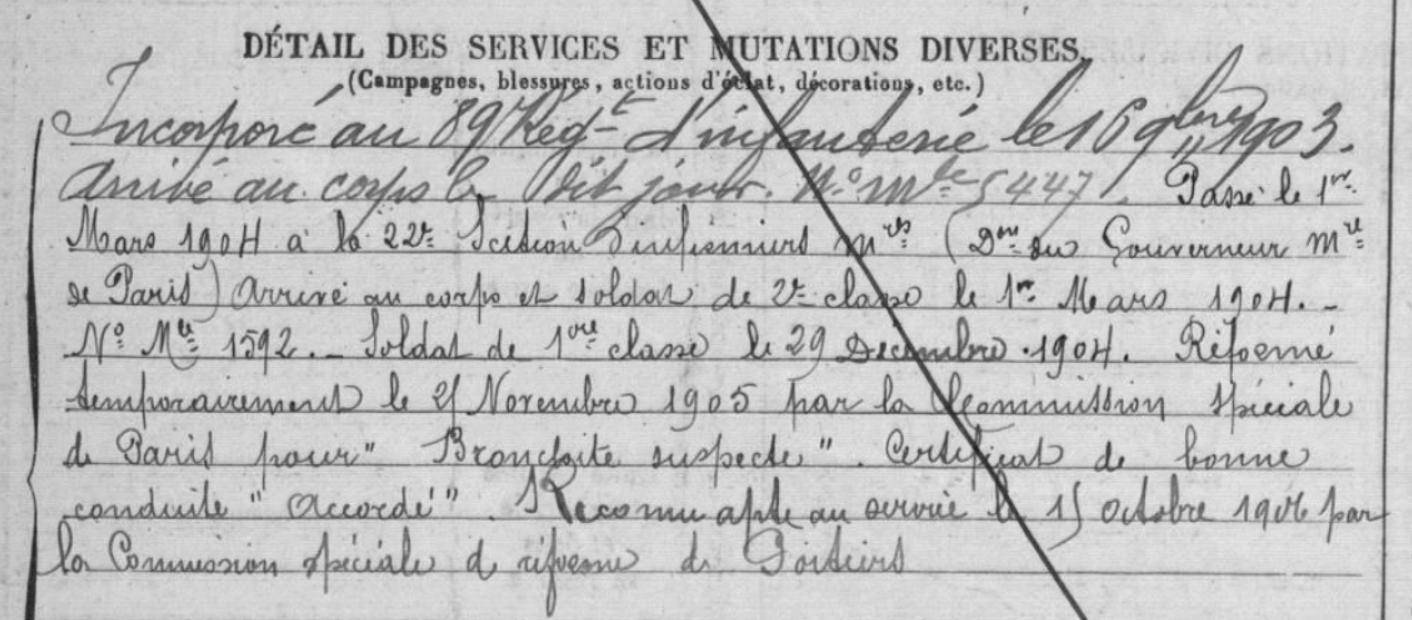 DÉTAIL DES SERVICES ET MUTATIONS DIVERSES.
(Campagnes, blessures, actions d'éclat, décorations, etc.)
Incorporé au 89e Régt d'infanterie le 16 9bre 1903.
Arrivé au corps le dit jour. No Mle 5447. Passé le 1er
Mars 1904 à la 22e Section d'infirmiers Mres (Don du Gouverneur Mre
de Paris) Arrivé au corps et soldat de 2e classe le 1er Mars 1904. -
No Mle 1592. - Soldat de 1ère classe le 29 Décembre 1904. Réformé
temporairement le Novembre 1905 par la Commission spéciale
de Paris pour " Bronchite suspecte ". Certificat de bonne
conduite " Accordé ". Reconnu apte au service le octobre 1906 par
la Commission spéciale de réforme de Poitiers